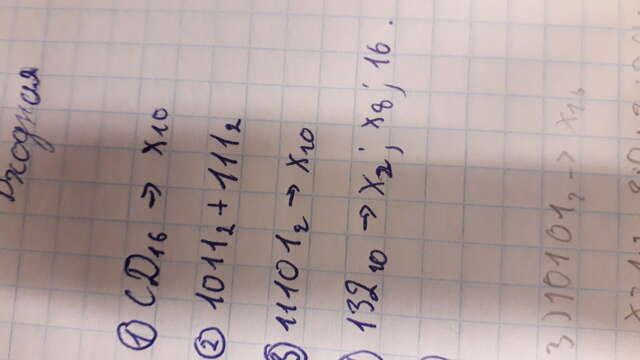 Входная
① CD₁₆ → x₁₀
② 1011₂ + 111₂
③ 11101₂ → x₁₀
) 132₁₀ → x₂; x₈; 16.
3) 10101₂ → x₁₆